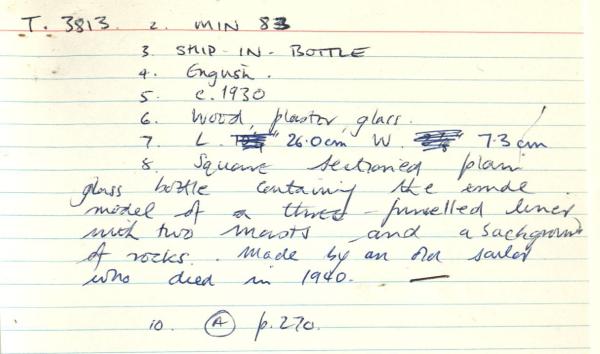 T. 3813. 2. MIN 83
3. SHIP-IN-BOTTLE
4. English.
5. c. 1930
6. Wood, plaster, glass.
7. L. 26.0cm W. 7.3 cm
8. Square sectioned plain
glass bottle containing the crude
model of a three-funnelled liner
with two masts and a background
of rocks. Made by an old sailor
who died in 1940. —
10. (A) p.270.